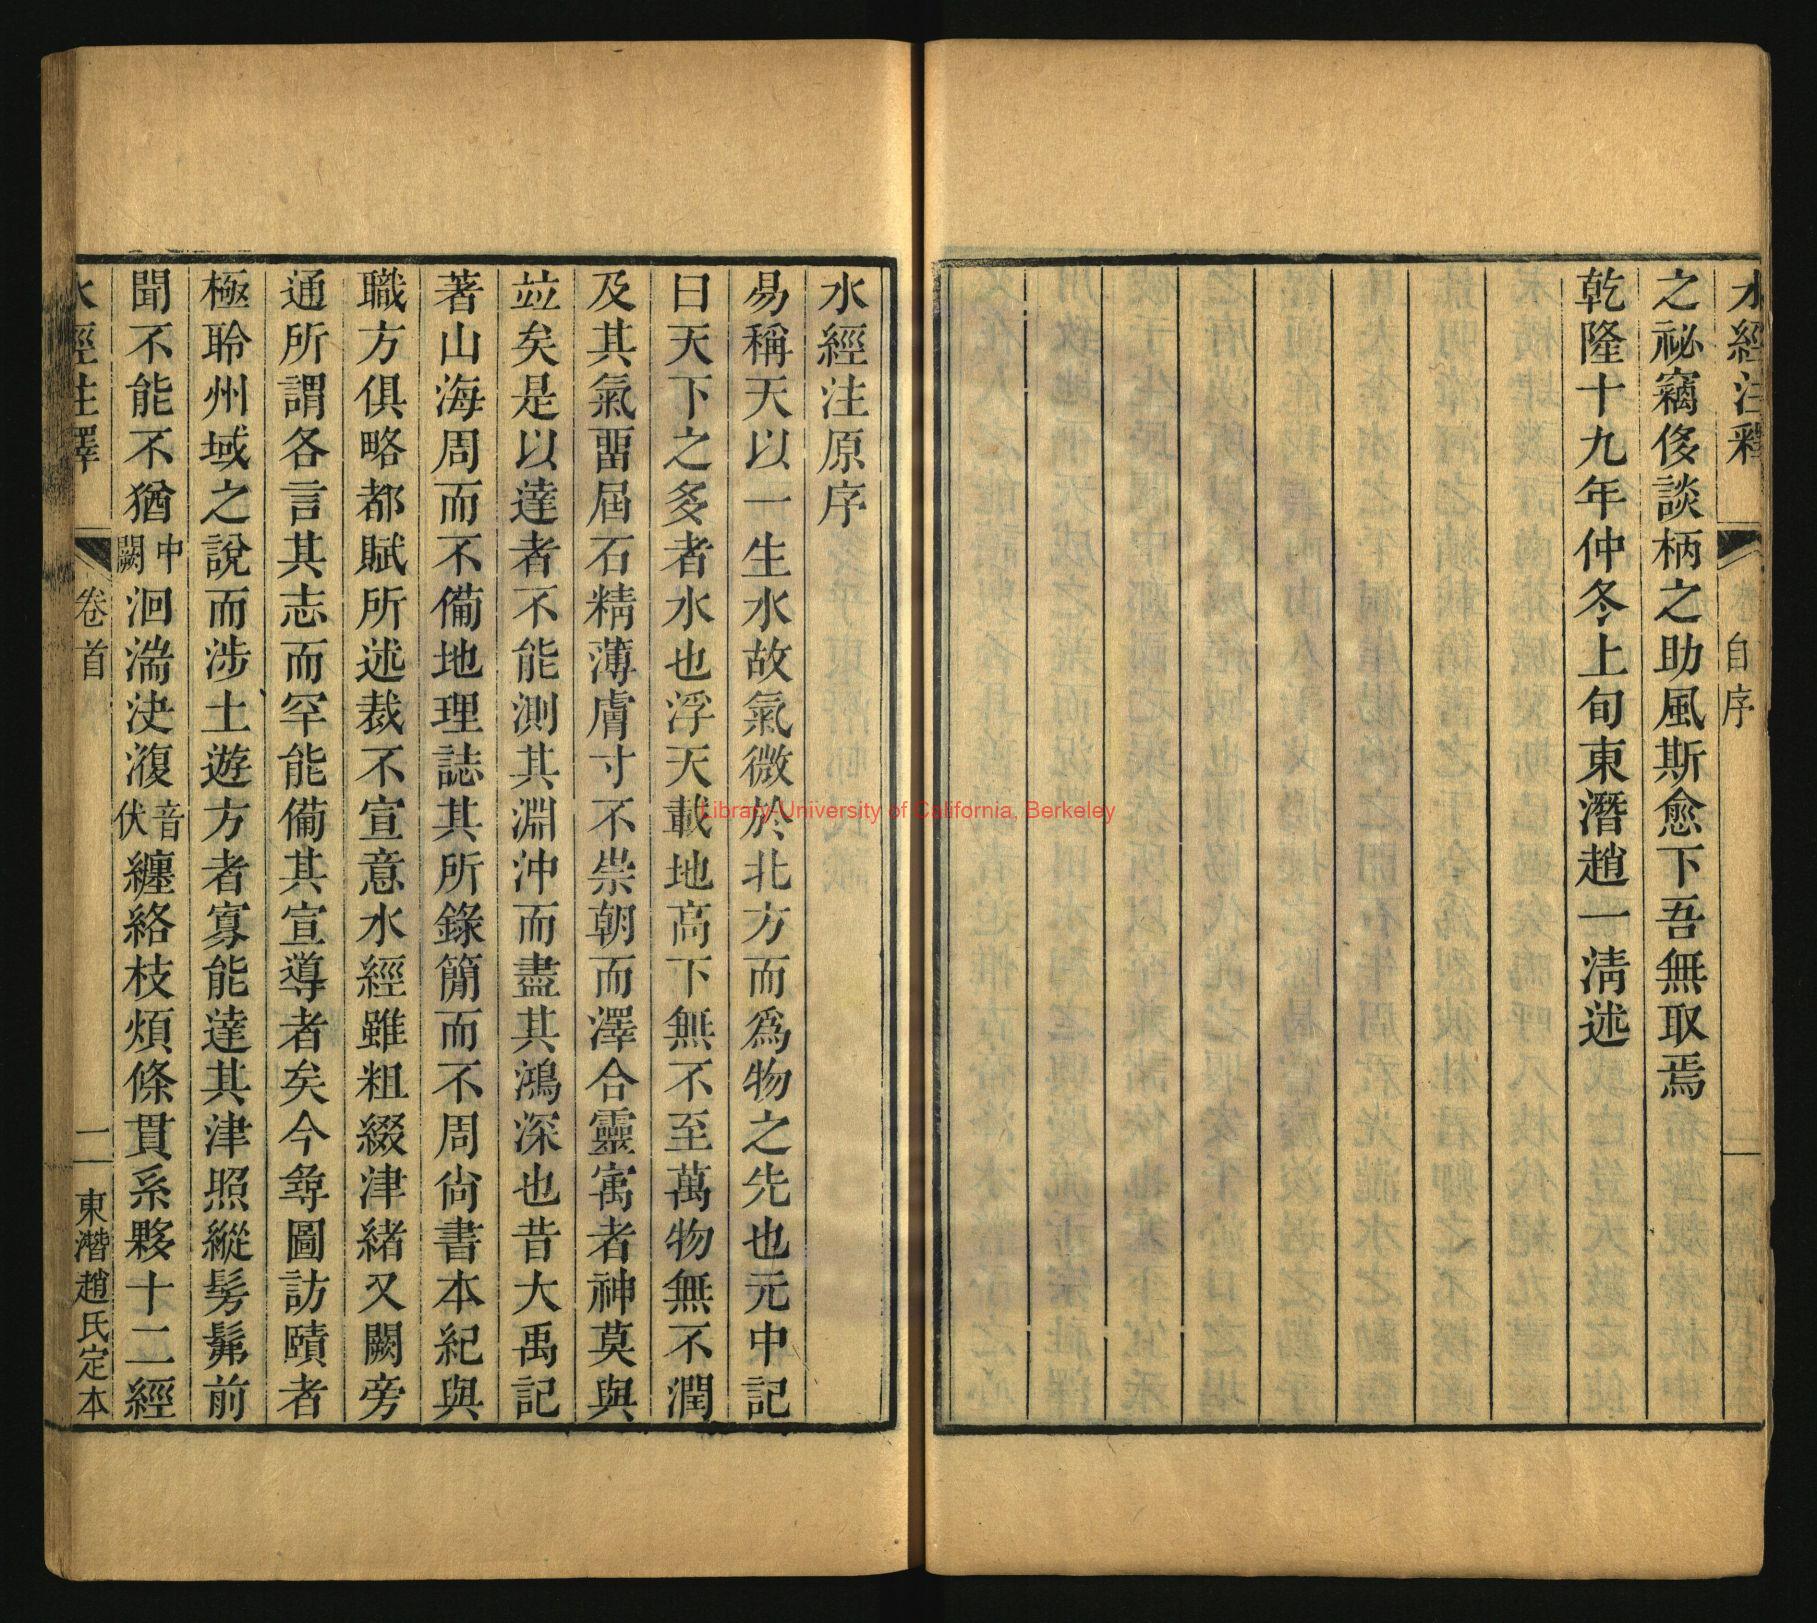 水經注釋
自序
二
之祕竊侈談柄之助風斯愈下吾無取焉
乾隆十九年仲冬上旬東潛趙一淸述
水經注原序
易稱天以一生水故氣微於北方而爲物之先也元中記
曰天下之多者水也浮天載地高下無不至萬物無不潤
及其氣畱屆石精薄膚寸不崇朝而澤合靈寓者神莫與
竝矣是以達者不能測其淵沖而盡其鴻深也昔大禹記
著山海周而不備地理誌其所錄簡而不周尙書本紀與
職方俱略都賦所述裁不宣意水經雖粗綴津緒又闕旁
通所謂各言其志而罕能備其宣導者矣今尋圖訪賾者
極聆州域之說而涉土遊方者寡能達其津照縱髣髴前
聞不能不猶中闕洄湍決澓音伏纏絡枝煩條貫系夥十二經
水經注釋
卷首
一
東潛趙氏定本
Library-University of California, Berkeley